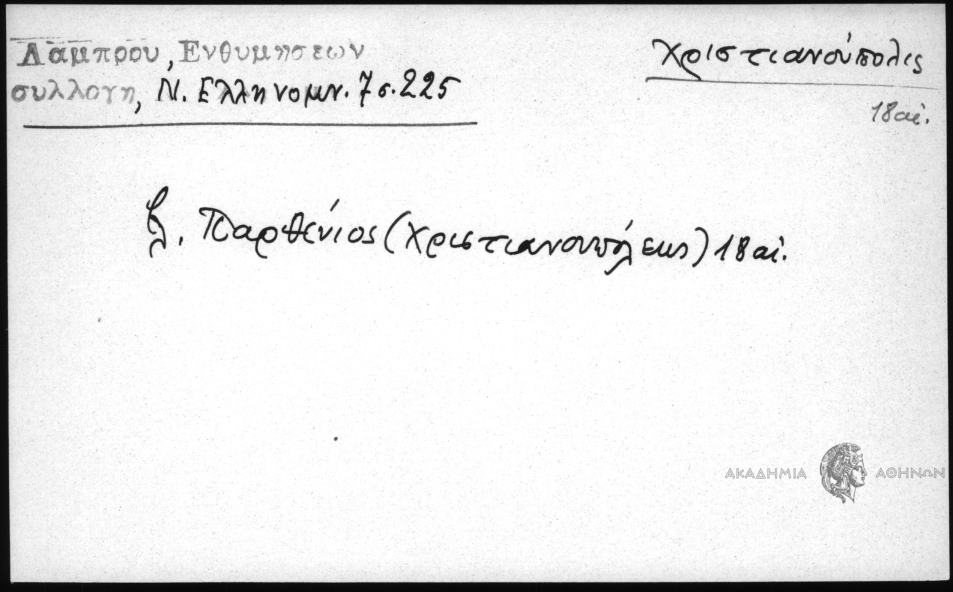 Λάμπρου, Ενθυμησεων
συλλογη, Ν. Ελληνομν. 7 σ. 225
Χριστιανούπολις
18 αἰ.
βλ. Παρθένιος (Χριστιανουπόλεως) 18 αἰ.
ΑΚΑΔΗΜΙΑ ΑΘΗΝΩΝ